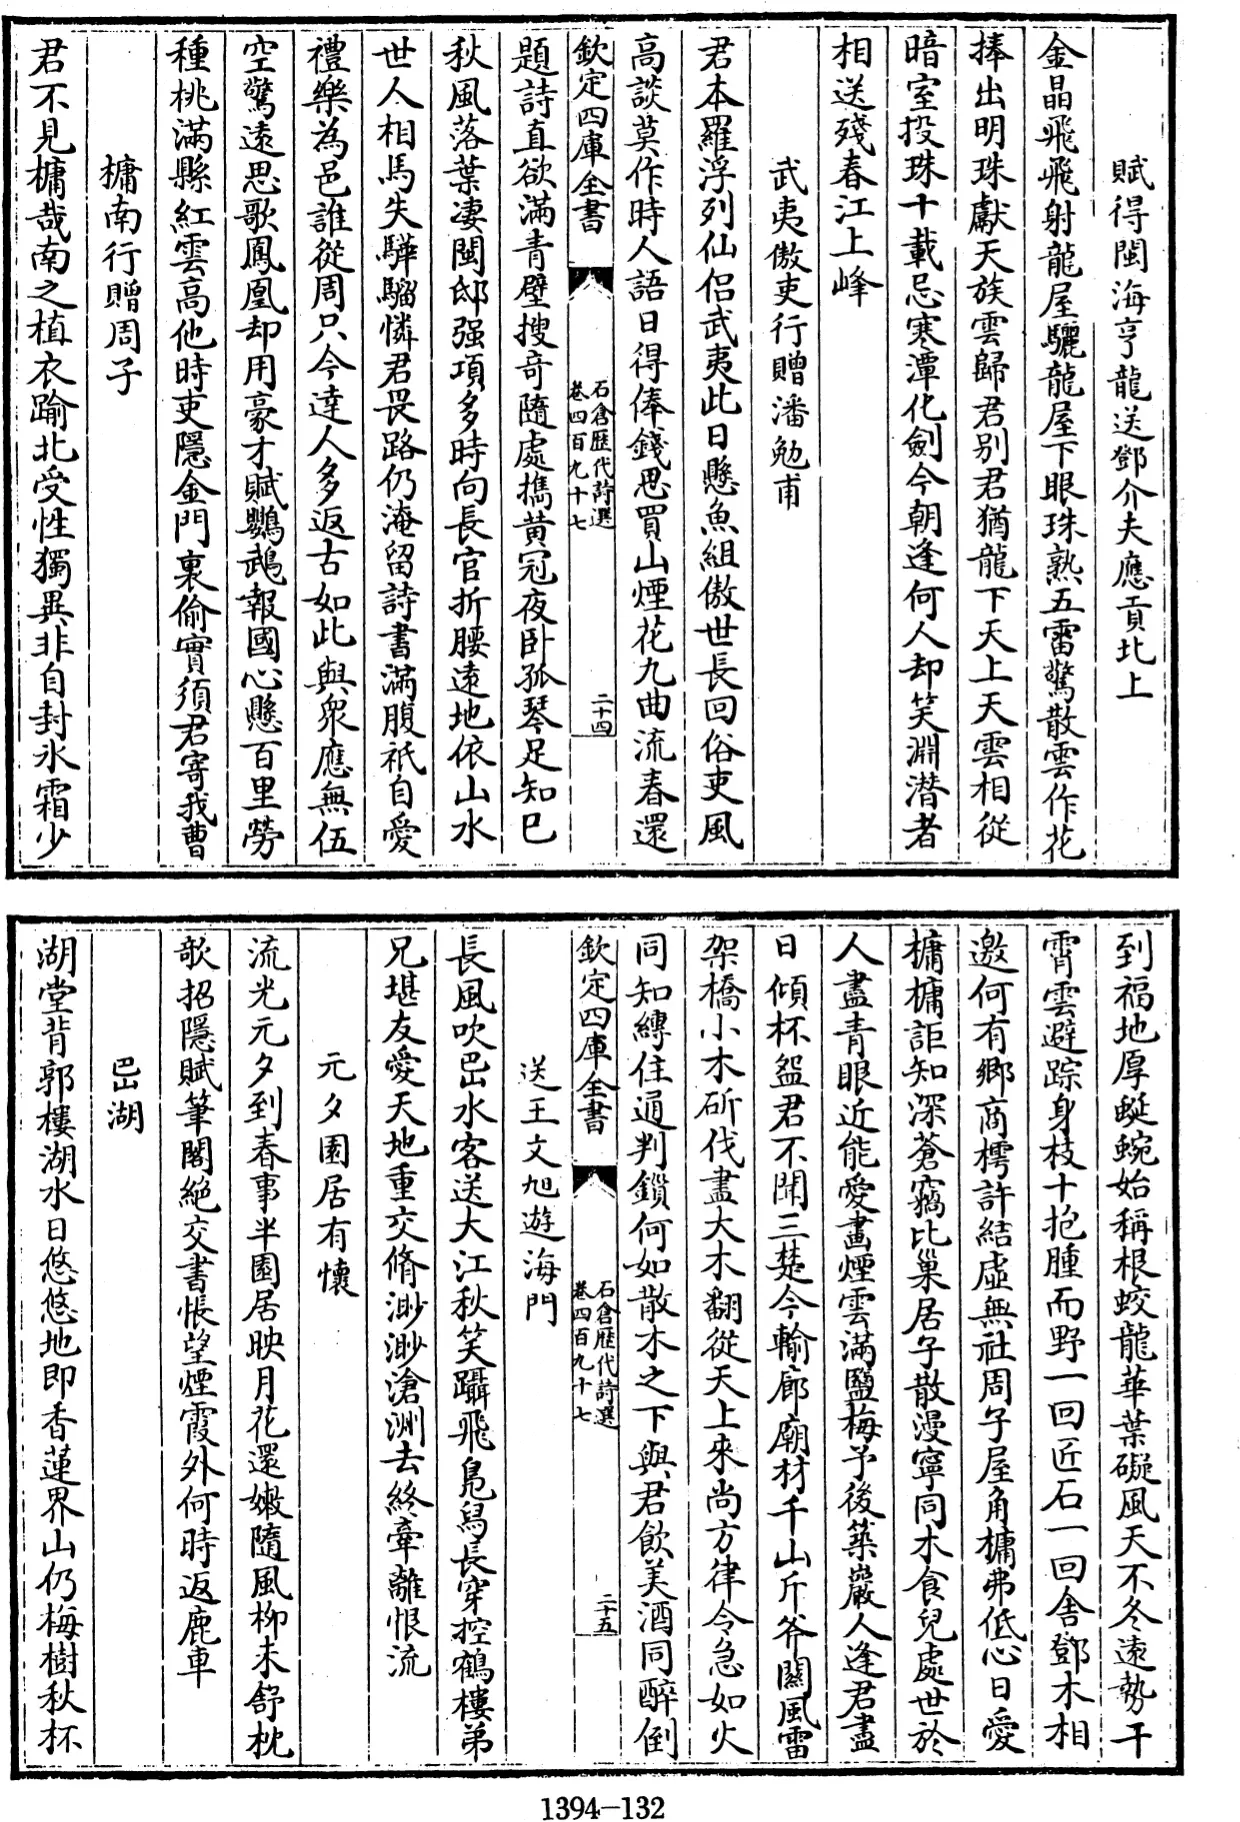 賦得閩海亨龍送鄧介夫應貢北上
金晶飛飛射龍屋驪龍屋下眼珠熟五雷驚散雲作花
捧出明珠獻天族雲歸君别君猶龍下天上天雲相從
暗室投珠十載忌寒潭化劍今朝逢何人却笑淵潜者
相送殘春江上峰
武夷傲吏行贈潘勉甫
君本羅浮列仙侣武夷此日懸魚組傲世長回俗吏風
高談莫作時人語日得俸錢思買山煙花九曲流春還
欽定四庫全書
石倉歷代詩選
卷四百九十七
二十四
題詩直欲滿青壁搜奇隨處擕黄冠夜卧孤琴足知巳
秋風落葉凄閩邸强項多時向長官折腰遠地依山水
世人相馬失驊騮憐君畏路仍淹留詩書滿腹祇自愛
禮樂為邑誰從周只今達人多返古如此與衆應無伍
空驚遠思歌鳳凰却用豪才賦鸚鵡報國心懸百里勞
種桃滿縣紅雲高他時吏隱金門裏偷實須君寄我曹
樠南行贈周子
君不見樠哉南之植衣踰北受性獨異非自封氷霜少
到福地厚蜒蜿始稱根蛟龍華葉礙風天不冬遠勢干
霄雲避踪身枝十抱腫而野一回匠石一回舍鄧木相
邀何有鄉商樗許結虛無社周子屋角樠弗低心日愛
樠樠詎知深蒼竊比巢居子散漫寧同木食兒處世於
人盡青眼近能愛畫煙雲滿鹽梅予後築巖人逢君盡
日傾杯盌君不聞三楚今輸廊廟材千山斤斧闘風雷
架橋小木斫伐盡大木翻從天上來尚方律令急如火
同知縛住通判鎖何如散木之下與君飲美酒同醉倒
欽定四庫全書
石倉歷代詩選
卷四百九十七
二十五
送王文旭遊海門
長風吹巴水客送大江秋笑躡飛鳬舄長穿控鶴樓弟
兄堪友愛天地重交脩渺渺滄洲去終牽離恨流
元夕園居有懷
流光元夕到春事半園居映月花還嫩隨風栁未舒枕
欹招隱賦筆閣絶交書悵望煙霞外何時返鹿車
巴湖
湖堂背郭樓湖水日悠悠地即香蓮界山仍梅樹秋杯
1394—132